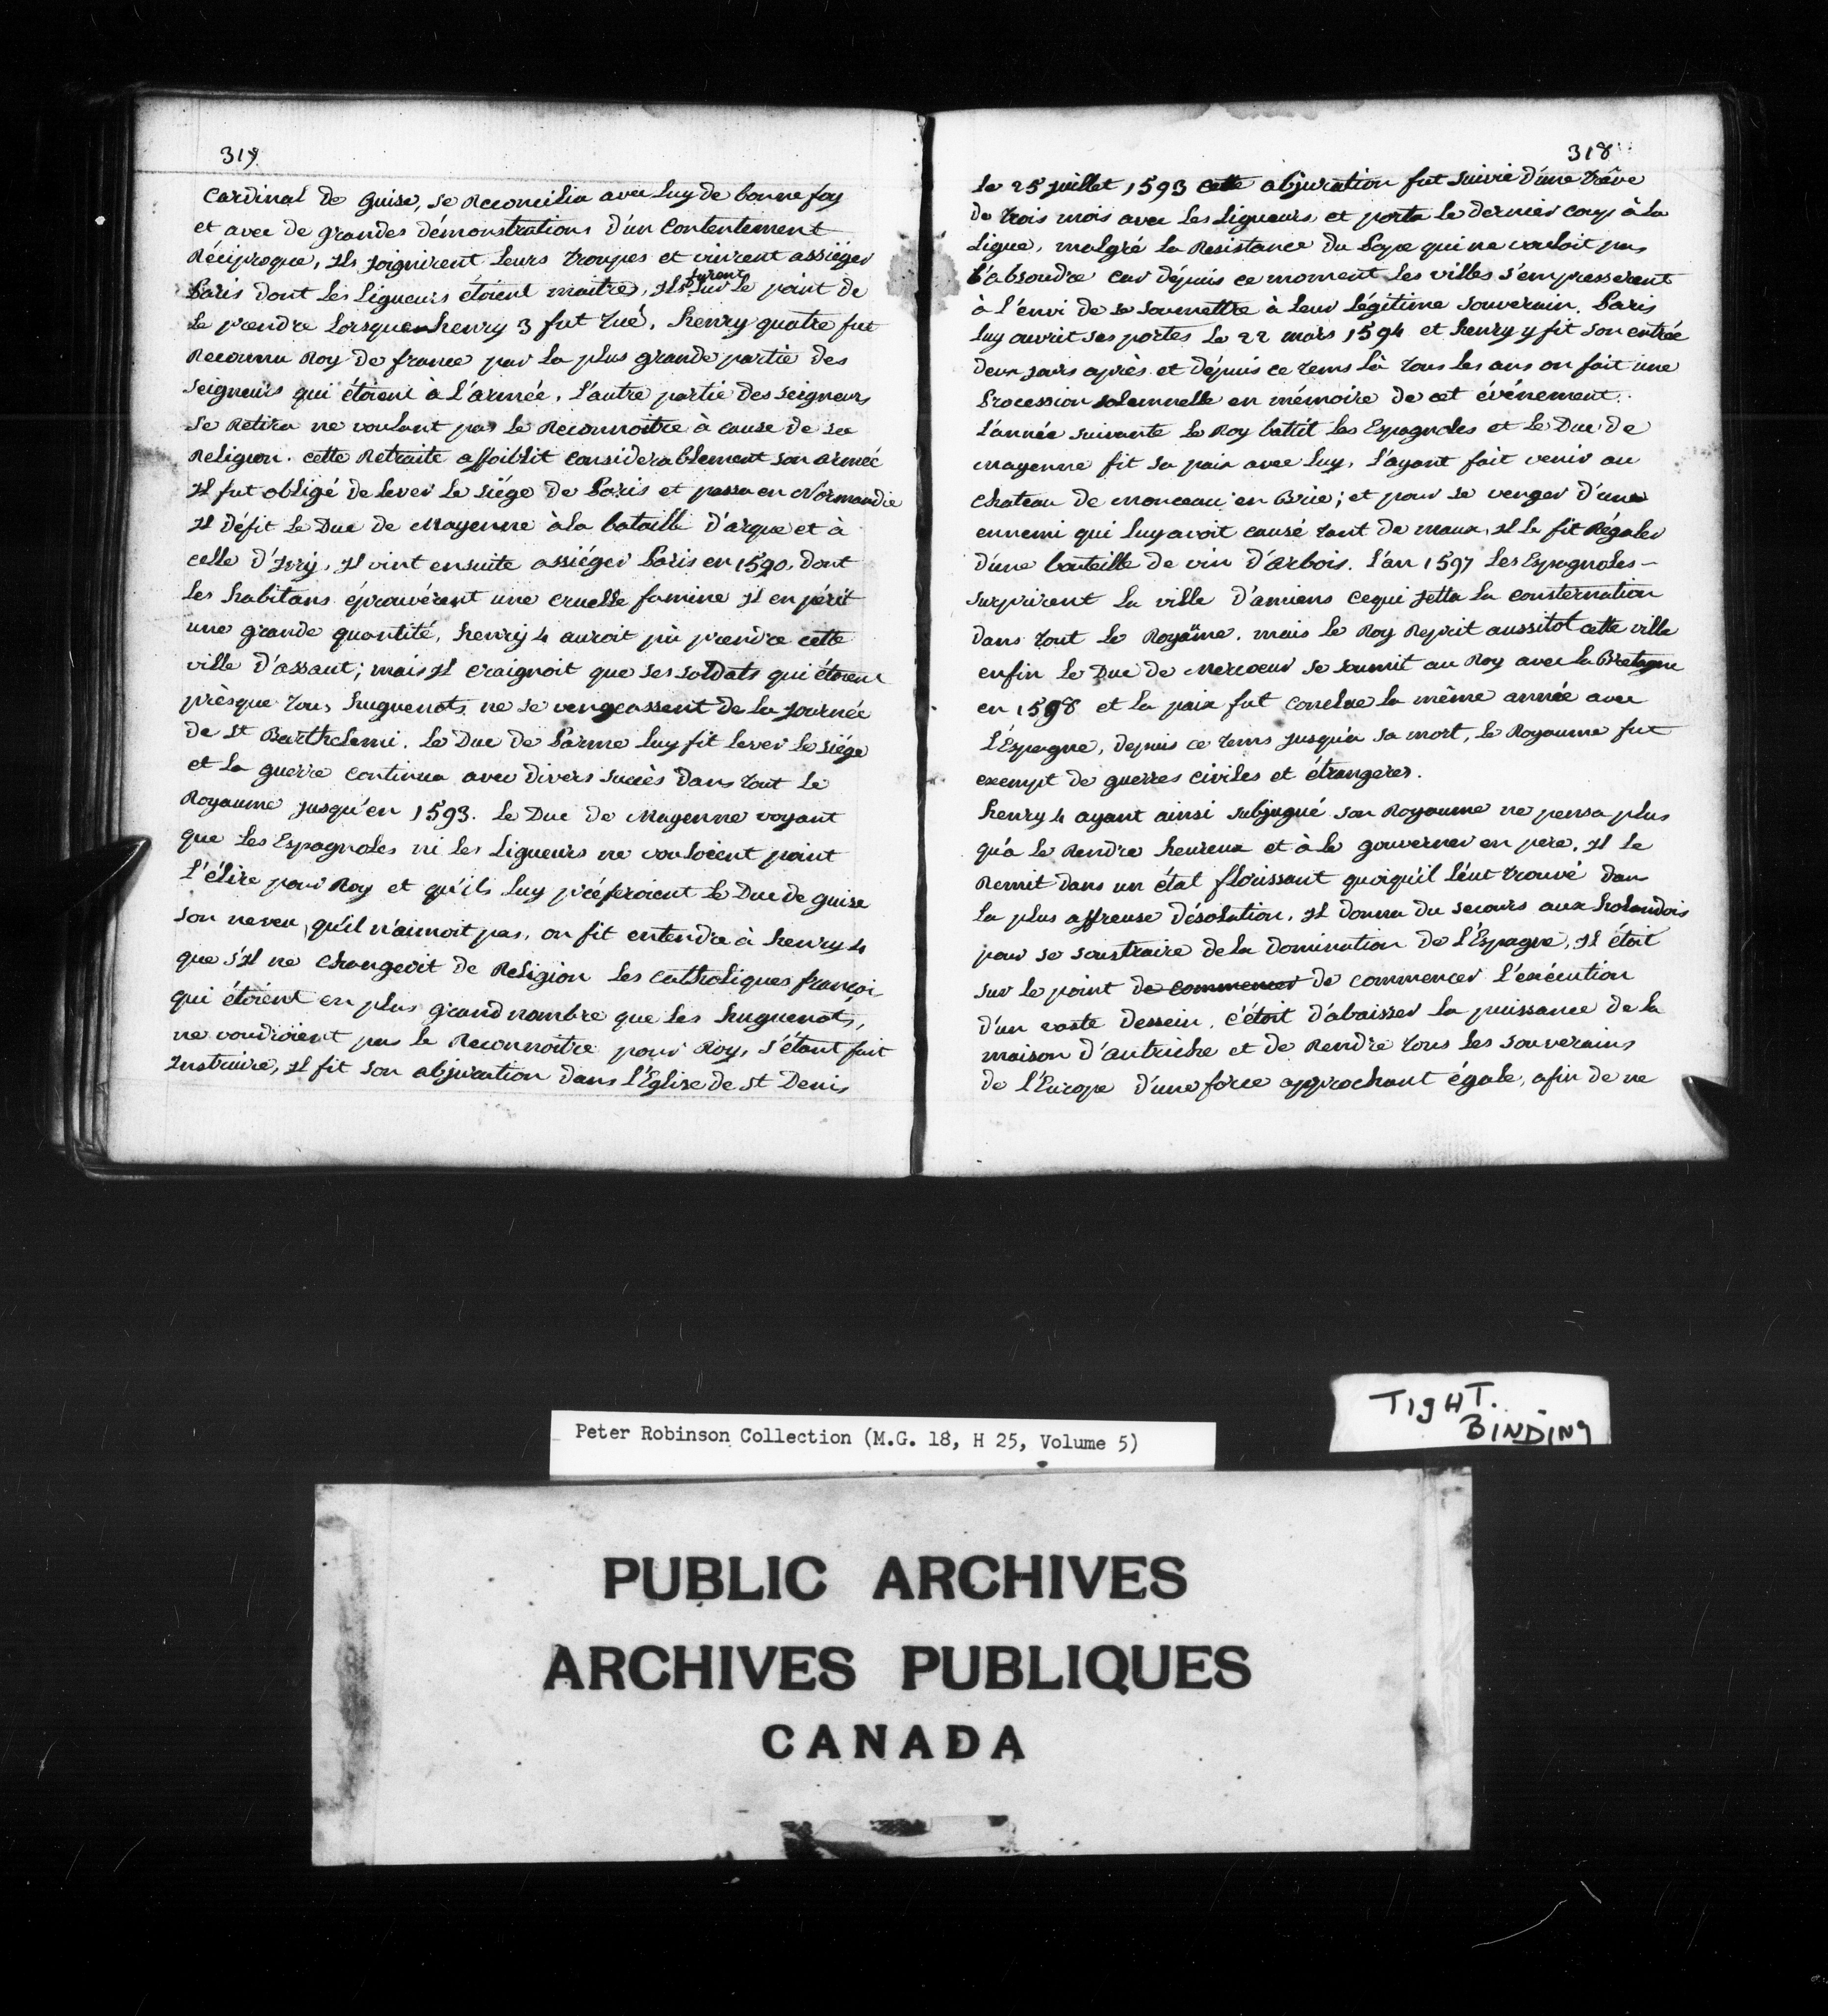 317.
Cardinal de Guise, se Reconcilia avec luy de bonne foy
et avec de grandes démonstrations d'un Contentement
Réciproque, Ils joignirent leurs troupes et vinrent assiéger
Paris dont les Ligueurs étoient maitres, Ils furent sur le point de
le prendre lorsque henry 3 fut tué, henry quatre fut
Reconnu Roy de france par la plus grande partie des
seigneurs qui étoient à l'armée, l'autre partie des seigneurs
se Retira ne voulant pas le Reconnoître à cause de sa
Religion. cette Retraite affoiblit considerablement son armée
Il fut obligé de lever le siége de Paris et passa en Normandie
Il défit le Duc de Mayenne à la bataille d'arque et à
celle d'Ivry, Il vint ensuite assiéger Paris en 1590, dont
les habitans éprouvérent une cruelle famine Il en périt
une grande quantité, henry 4 auroit pû prendre cette
ville d'assaut; mais Il craignoit que ses soldats qui étoient
prèsque tous huguenots ne se vengeassent de la journée
de St Barthelemi. Le Duc de Parme luy fit lever le siége
et la guerre continua avec divers succès dans tout le
Royaume jusqu'en 1593. Le Duc de Mayenne voyant
que les Espagnoles ni les Ligueurs ne vouloient point
l'élire pour Roy et qu'ils luy préferoient le Duc de guise
son neveu, qu'il n'aimoit pas, on fit entendre à henry 4
que s'Il ne changeoit de Religion les catholiques françoi
qui étoient en plus grand nombre que les huguenots,
ne voudroient pas le Reconnoitre pour Roy, s'étant fait
Instruire, Il fit son abjuration dans l'Eglise de St Denis
318
le 25 juillet 1593 cette abjuration fut suivie d'une trêve
de trois mois avec les Ligueurs et porta le dernier coup à la
Ligue, malgré la Resistance du Pape qui ne vouloit pas
l'absoudre car dépuis ce moment les villes s'empresserent
à l'envi de se soumettre à leur légitime souverain. Paris
luy ouvrit ses portes le 22 mars 1594 et henry y fit son entrée
deux jours après et dépuis ce tems là tous les ans on fait une
Procession solemnelle en mémoire de cet événement.
L'année suivante le Roy battit les Espagnoles et le Duc de
Mayenne fit sa paix avec luy, l'ayant fait venir au
chateau de Monceau en Brie; et pour se venger d'un
ennemi qui luy avoit causé tant de maux, Il le fit Régaler
d'une bouteille de vin d'Arbois. L'an 1597 les Espagnoles -
surprirent la ville d'amiens ce qui jetta la consternation
dans tout le Royaume. mais le Roy Reprit aussitot cette ville
enfin le Duc de Mercoeur se soumit au Roy avec la Bretagne
en 1598 et la paix fut conclue la même année avec
l'Espagne, depuis ce tems jusqu'a sa mort, le Royaume fut
exempt de guerres civiles et étrangeres.
henry 4 ayant ainsi subjugué son Royaume ne pensa plus
qu'a le Rendre heureux et à le gouverner en pere, Il le
Remit dans un état florissant quoiqu'il l'eut trouvé dan
la plus affreuse désolation, Il donna du secours aux holandois
pour se soustraire de la domination de l'Espagne, Il étoit
sur le point de commencer de commencer l'exécution
d'un vaste dessein, c'étoit d'abaisser la puissance de la
maison d'autriche et de Rendre tous les souverains
de l'Europe d'une force approchant égale, afin de ne
TIGHT.
BINDING
Peter Robinson Collection (M.G. 18, H 25, Volume 5)
PUBLIC ARCHIVES
ARCHIVES PUBLIQUES
CANADA